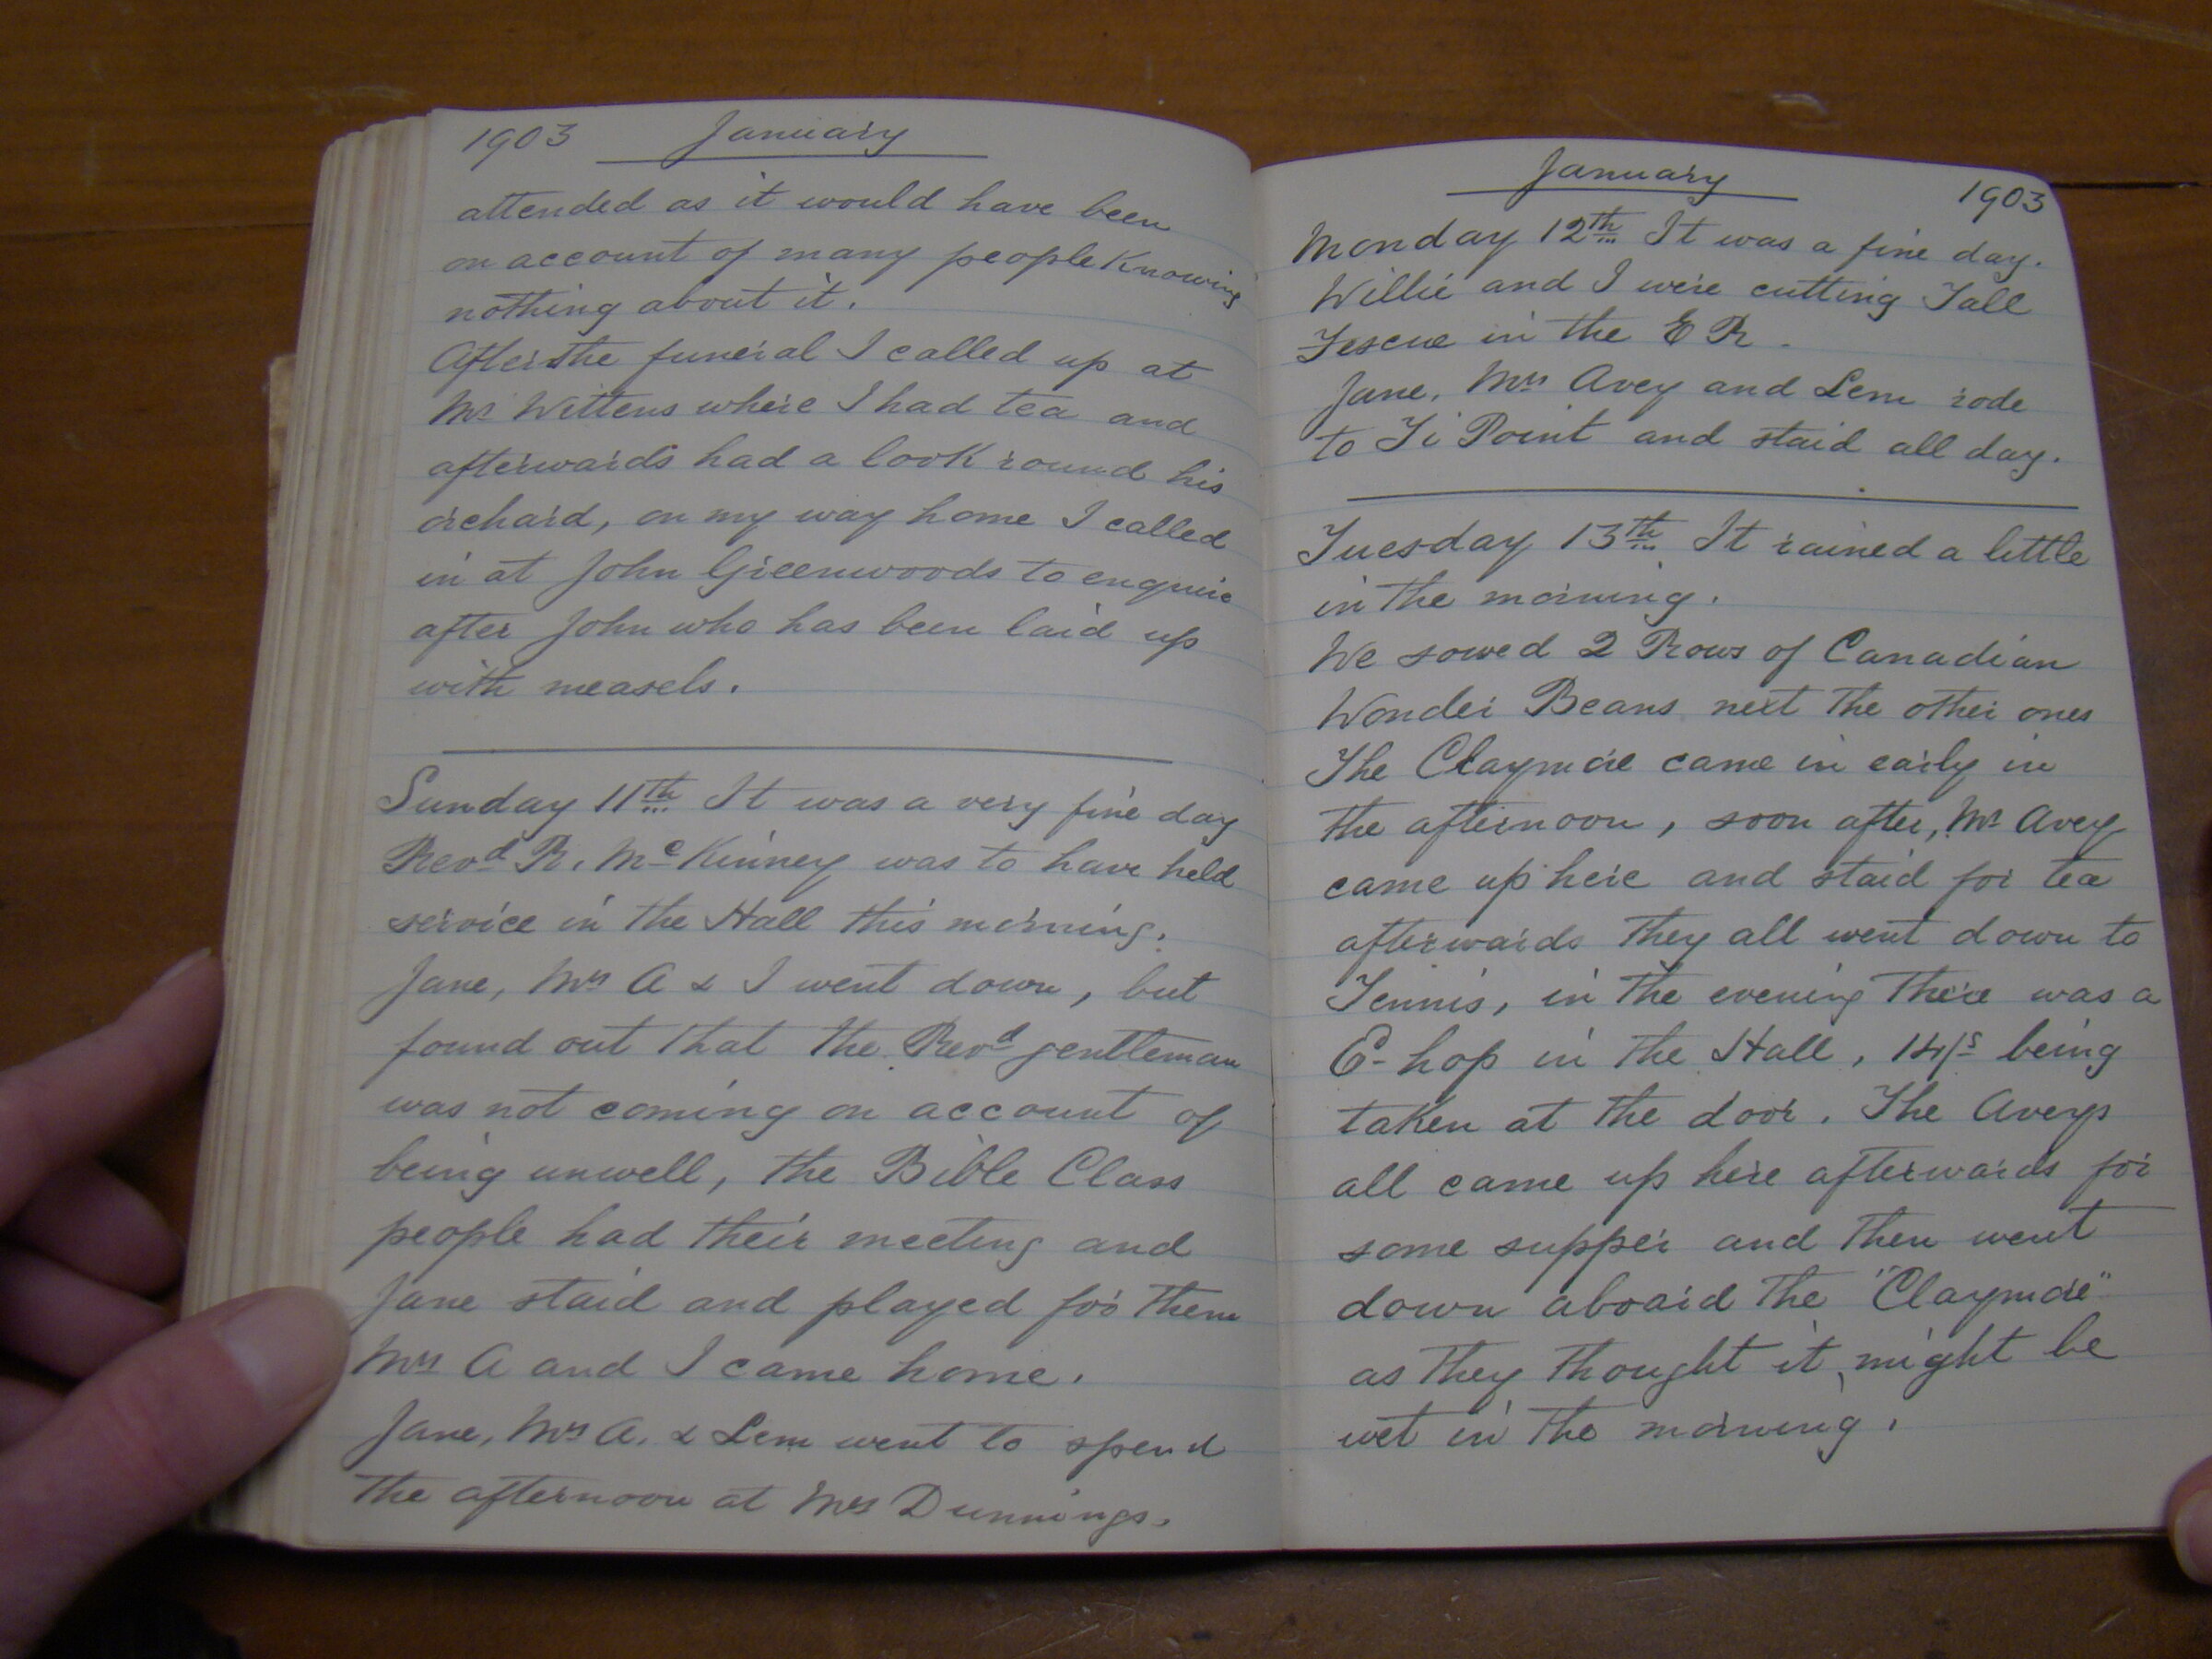 1903 January
attended as it would have been
on account of many people Knowing
nothing about it.
After the funeral I called up at
Mr Wittens where I had tea and
afterwards had a look round his
orchard, on my way home I called
in at John Greenwoods to enquire
after John who has been laid up
with measels.
Sunday 11th It was a very fine day
Revd R. McKinney was to have held
service in the Hall this morning.
Jane, Mrs A & I went down, but
found out that the Revd gentleman
was not coming on account of
being unwell, the Bible Class
people had their meeting and
Jane staid and played for them
Mrs A and I came home.
Jane, Mrs A. & Lem went to spend
the afternoon at Mrs Dunnings.
January 1903
Monday 12th It was a fine day.
Willie and I were cutting Tall
Fescue in the E R.
Jane, Mrs Avey and Lem rode
to Ti Point and staid all day.
Tuesday 13th It rained a little
in the morning.
We sowed 2 Rows of Canadian
Wonder Beans next the other ones
The Claymore came in early in
the afternoon, soon after, Mr Avey
came up here and staid for tea
afterwards they all went down to
Tennis, in the evening there was a
E-hop in the Hall, 14/s being
taken at the door. The Averys
all came up here afterwards for
some supper and then went
down aboard the "Claymore"
as they thought it might be
wet in the morning.